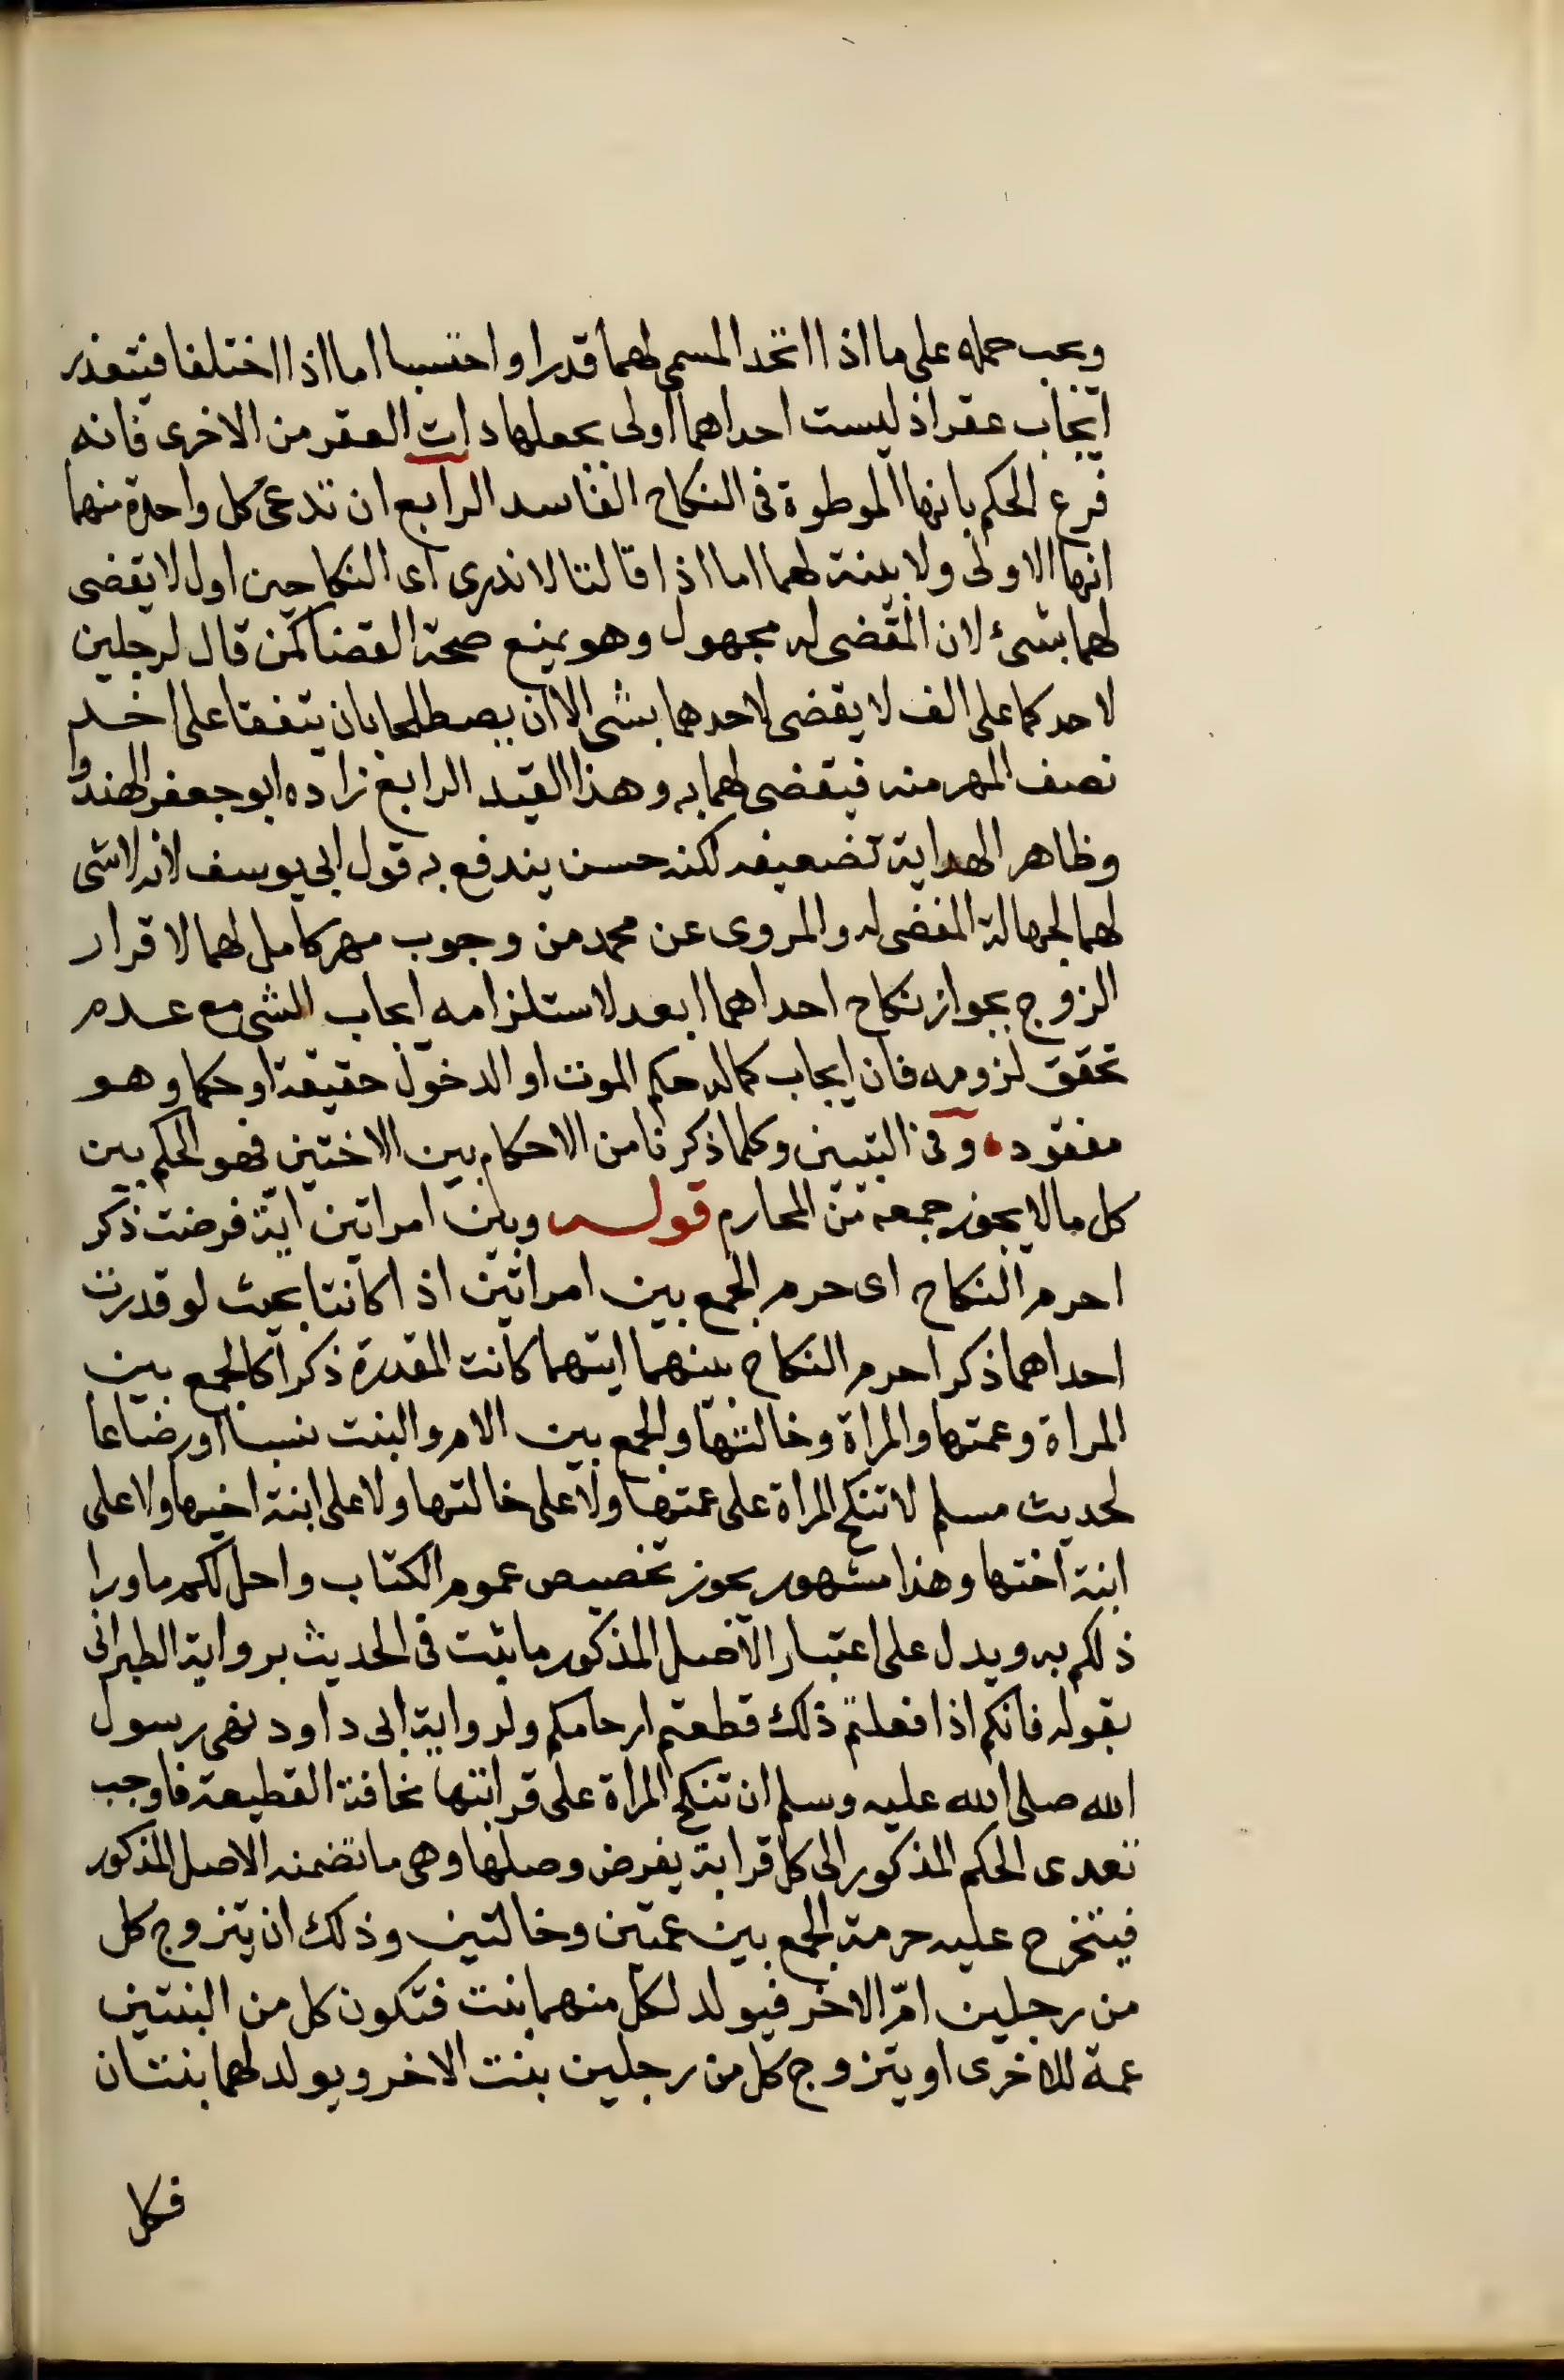 ويجب حمله على ما اذا اتحد المسمى لهما قدرا واحتسبا اما اذا اختلفا فيتعذر
ايجاب عقر اذ ليست احداهما اولى بجعلها ذات العقر من الاخرى فانه
فرع الحكم بانها الموطوة فى النكاح الفاسد الرابع ان تدعى كل واحدة منهما
انها الاولى ولا بينة لهما اما اذا قالتا لا ندرى اى النكاحين اول لا يقضى
لهما بشئ لان المقضى له مجهول وهو يمنع صحة القضا كمن قال لرجلين
لاحدكما على الف لا يقضى لاحدهما بشى الا ان يصطلحا بان يتفقا على اخد
نصف المهر منه فيقضى لهما به وهذا القيد الرابع زاده ابو جعفر الهندوا
وظاهر الهداية تضعيفه لكنه حسن يندفع به قول ابى يوسف لانه لا شى
لهما لجهالة المقضى له والمروى عن محمد من وجوب مهر كامل لهما لاقرار
الزوج بجواز نكاح احداهما ابعد لاستلزامه ايجاب الشى مع عدم
تحقق لزومه فان ايجاب كماله حكم الموت او الدخول حقيقة او حكما وهو
مفقود وفى التبيين وكلما ذكرنا من الاحكام بين الاختين فهو الحكم بين
كل ما لا يجوز جمعه من المحارم قوله وبين امراتين اية فرضت ذكر
احرم النكاح اى حرم الجمع بين امراتين اذا كانتا بحيث لو قدرت
احداهما ذكرا حرم النكاح بينهما ايتهما كانت المقدرة ذكرا كالجمع بين
المراة وعمتها والمراة وخالتها والجمع بين الام والبنت نسبا او رضاعا
لحديث مسلم لا تنكح المراة على عمتها ولا على خالتها ولا على ابنة اخيها ولا على
ابنة اختها وهذا مشهور يجوز تخصيص عموم الكتاب واحل لكم ما ورا
ذلكم به ويدل على اعتبار الاصل المذكور ما ثبت فى الحديث برواية الطبرانى
بقوله فانكم اذا فعلتم ذلك قطعتم ارحامكم ولرواية ابى داود نهى رسول
الله صلى الله عليه وسلم ان تنكح المراة على قرابتها مخافة القطيعة فاوجب
تعدى الحكم المذكور الى كل قرابة يفرض وصلها وهى ما تضمنه الاصل المذكور
فيتخرج عليه حرمة الجمع بين عمتين وخالتين وذلك ان يتزوج كل
من رجلين امّ الاخر فيولد لكل منهما بنت فتكون كل من البنتين
عمة للاخرى او يتزوج كل من رجلين بنت الاخر ويولد لهما بنتان
فكل